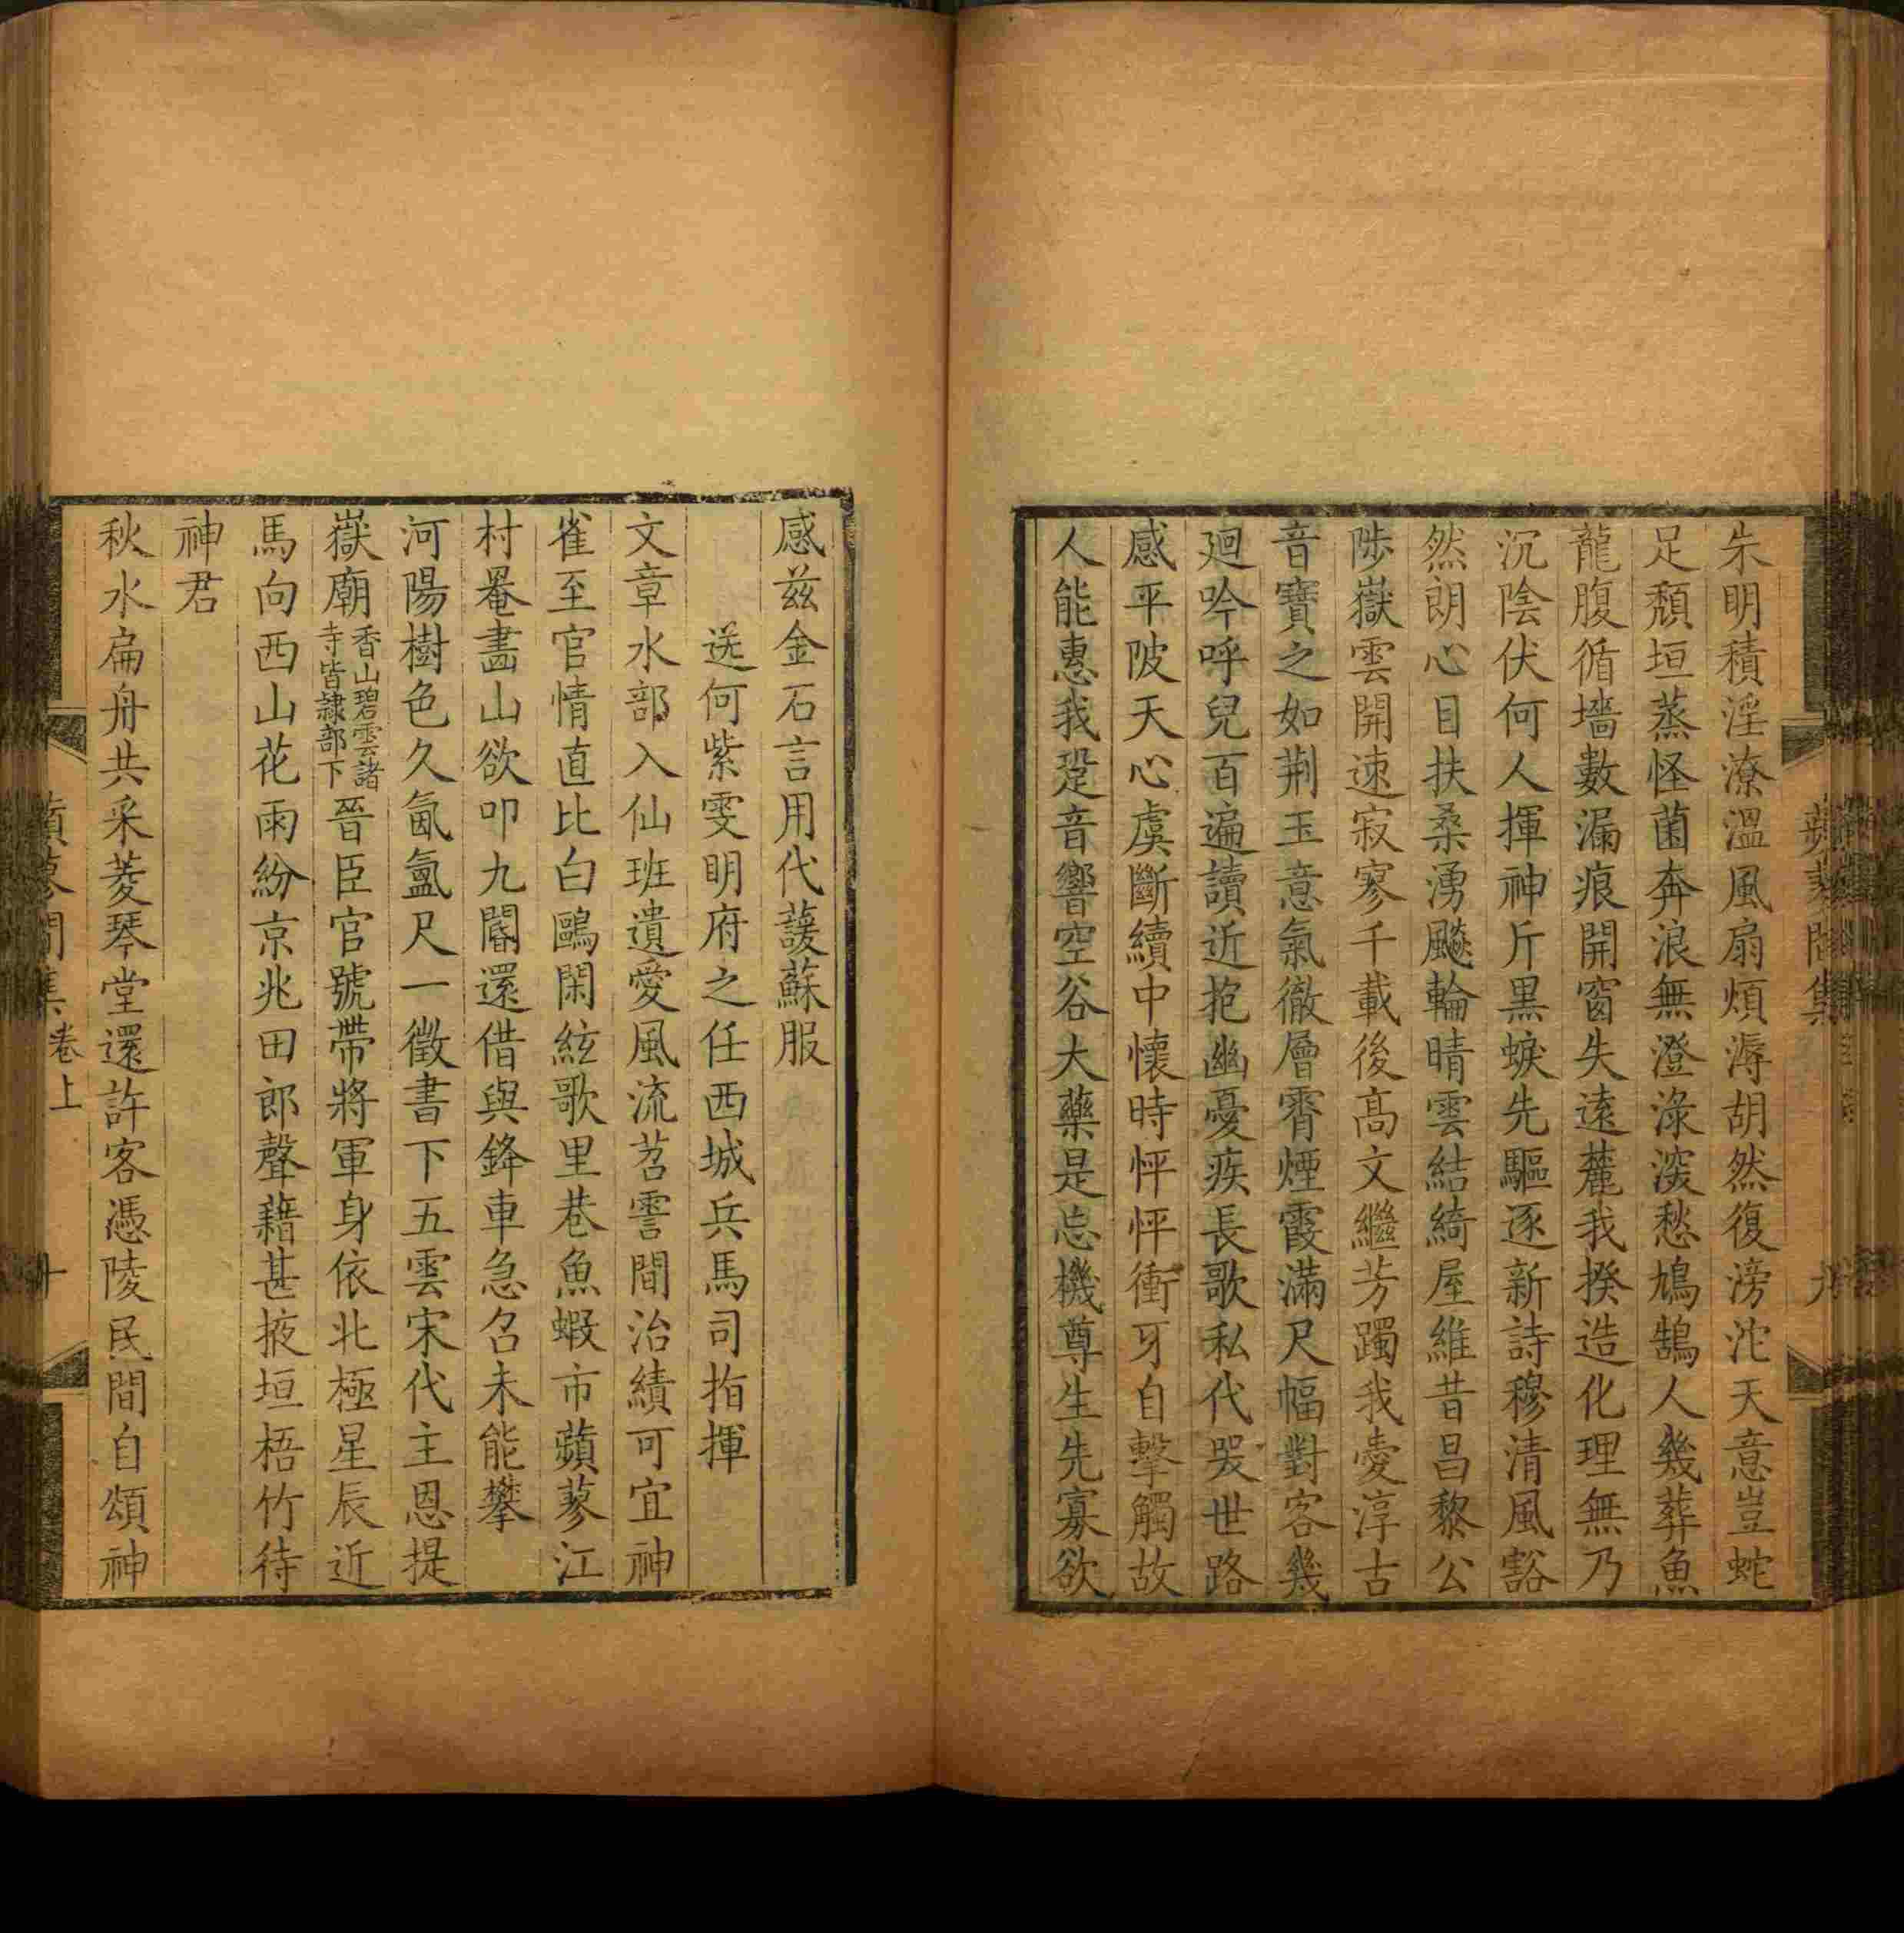 朱明積淫潦溫風扇煩溽胡然復滂沱天意豈蛇
足頹垣蒸怪菌奔浪無澄淥深愁鳩鵠人幾葬魚
龍腹循墻數漏痕開窗失遠麓我揆造化理無乃
沉陰伏何人揮神斤黑蜧先驅逐新詩穆清風豁
然朗心目扶桑湧飈輪晴雲結綺屋維昔昌黎公
陟嶽雲開速寂寥千載後高文繼芳躅我憂淳古
音寶之如荆玉意氣徹層霄煙霞滿尺幅對客幾
廻吟呼兒百遍讀近抱幽憂疾長歌私代哭世路
感平陂天心虞斷續中懷時怦怦衝牙自擊觸故
人能惠我跫音響空谷大藥是忘機尊生先寡欲
蘋蓼閒集
九
感兹金石言用代護蘇服
送何紫雯明府之任西城兵馬司指揮
文章水部入仙班遺愛風流苕霅間治績可宜神
雀至官情直比白鷗閑絃歌里巷魚蝦市蘋蓼江
村罨畵山欲叩九閽還借與鋒車急召未能攀
河陽樹色久氤氳尺一徵書下五雲宋代主恩提
嶽廟香山碧雲諸寺皆隸部下晉臣官號帶將軍身依北極星辰近
馬向西山花雨紛京兆田郎聲藉甚掖垣梧竹待
神君
秋水扁舟共采菱琴堂還許客憑陵民間自頌神
蘋蓼閒集 卷上
十